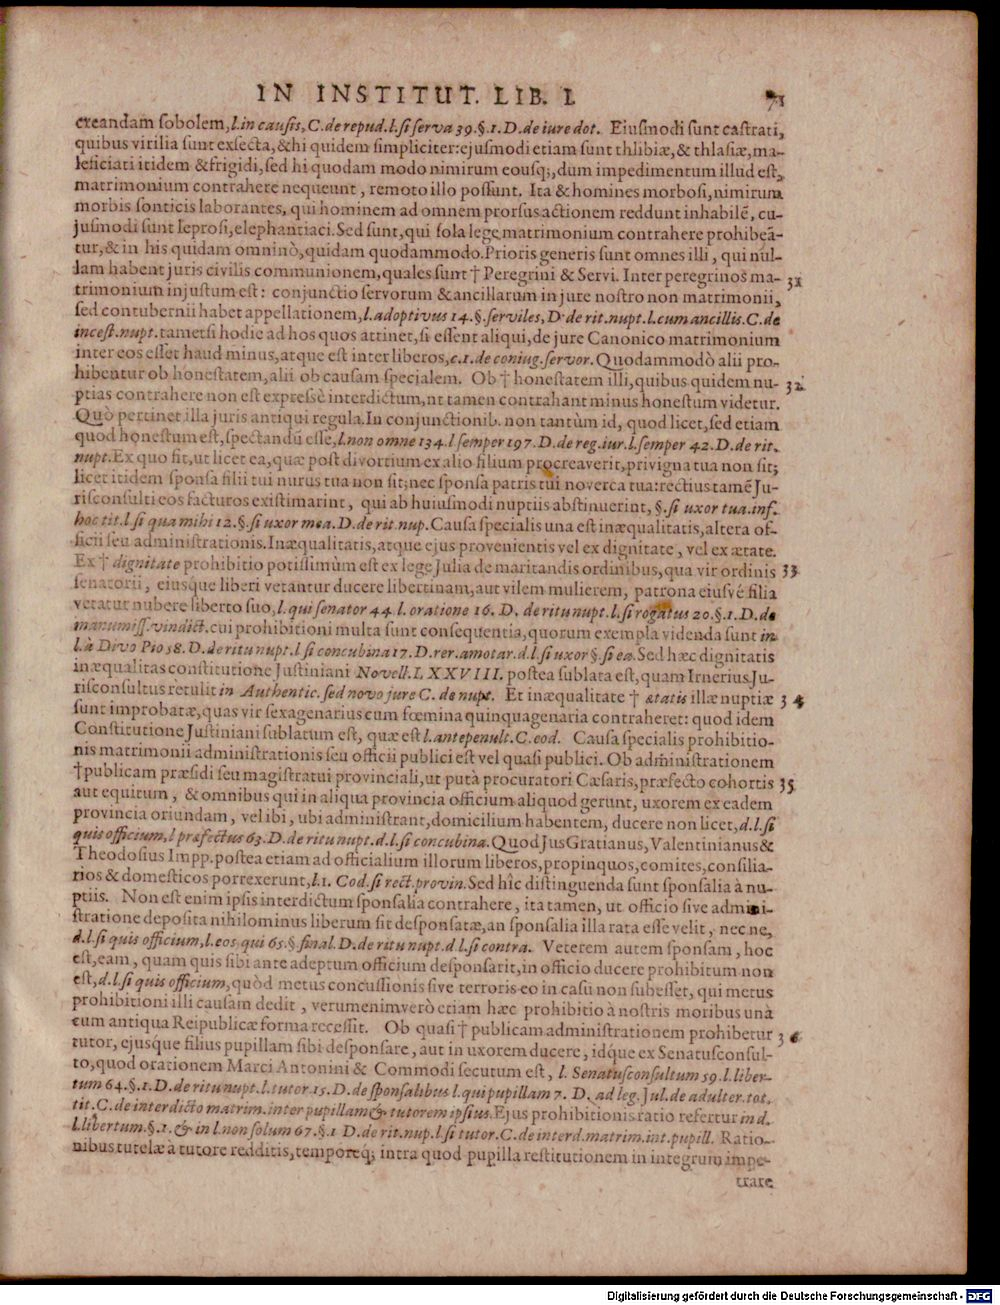 IN INSTITUT. LIB. I. 71
creandam sobolem, l. in causis, C. de repud. l. si serva 39. §. 1. D. de iure dot. Eiusmodi sunt castrati,
quibus virilia sunt exsecta, & hi quidem simpliciter: ejusmodi etiam sunt thlibiæ, & thlasiæ, ma-
leficiati itidem & frigidi, sed hi quodam modo nimirum eousq;, dum impedimentum illud est,
matrimonium contrahere nequeunt, remoto illo possunt. Ita & homines morbosi, nimirum
morbis sonticis laborantes, qui hominem ad omnem prorsus actionem reddunt inhabilē, cu-
jusmodi sunt leprosi, elephantiaci. Sed sunt, qui sola lege matrimonium contrahere prohibeā-
tur, & in his quidam omninò, quidam quodammodo. Prioris generis sunt omnes illi, qui nul-
lam habent juris civilis communionem, quales sunt † Peregrini & Servi. Inter peregrinos ma- 31
trimonium injustum est: conjunctio servorum & ancillarum in jure nostro non matrimonii,
sed contubernii habet appellationem, l. adoptivus 14. §. serviles, D. de rit. nupt. l. cum ancillis. C. de
incest. nupt. tametsi hodie ad hos quos attinet, si essent aliqui, de jure Canonico matrimonium
inter eos esset haud minus, atque est inter liberos, c. 1. de coniug. servor. Quodammodò alii pro-
hibentur ob honestatem, alii ob causam specialem. Ob † honestatem illi, quibus quidem nu- 32
ptias contrahere non est expressè interdictum, ut tamen contrahant minus honestum videtur.
Quò pertinet illa juris antiqui regula. In conjunctionib. non tantùm id, quod licet, sed etiam
quod honestum est, spectandū esse, l. non omne 134. l semper 197. D. de reg. iur. l. semper 42. D. de rit.
nupt. Ex quo fit, ut licet ea, quæ post divortium ex alio filium procreaverit, privigna tua non sit;
licet itidem sponsa filii tui nurus tua non sit; nec sponsa patris tui noverca tua: rectius tamē Ju-
risconsulti eos facturos existimarint, qui ab huiusmodi nuptiis abstinuerint, §. si uxor tua. inf.
hoc tit. l. si qua mihi 12. §. si uxor mea. D. de rit. nup. Causa specialis una est inæqualitatis, altera of-
ficii seu administrationis. Inæqualitatis, atque ejus provenientis vel ex dignitate, vel ex ætate.
Ex † dignitate prohibitio potissimùm est ex lege Julia de maritandis ordinibus, qua vir ordinis 33
senatorii, eiusque liberi vetantur ducere libertinam, aut vilem mulierem, patrona eiusvé filia
vetatur nubere liberto suo, l. qui senator 44. l. oratione 16. D. de ritu nupt. l. si rogatus 20. §. 1. D. de
manumiss. vindict. cui prohibitioni multa sunt consequentia, quorum exempla videnda sunt in
l. à Divo Pio 58. D. de ritu nupt. l si concubina 17. D. rer. amotar. d. l. si uxor §. si ea. Sed hæc dignitatis
inæqualitas constitutione Justiniani Novell. LXXVIII. postea sublata est, quam Irnerius Ju-
risconsultus retulit in Authentic. sed novo jure C. de nupt. Et inæqualitate † ætatis illæ nuptiæ 34
sunt improbatæ, quas vir sexagenarius cum fœmina quinquagenaria contraheret: quod idem
Constitutione Justiniani sublatum est, quæ est l. antepenult. C. eod. Causa specialis prohibitio-
nis matrimonii administrationis seu officii publici est vel quasi publici. Ob administrationem
† publicam præsidi seu magistratui provinciali, ut putà procuratori Cæsaris, præfecto cohortis 35
aut equitum, & omnibus qui in aliqua provincia officium aliquod gerunt, uxorem ex eadem
provincia oriundam, vel ibi, ubi administrant, domicilium habentem, ducere non licet, d. l. si
quis officium, l præfectus 63. D. de ritu nupt. d. l. si concubina. Quod Jus Gratianus, Valentinianus &
Theodosius Impp. postea etiam ad officialium illorum liberos, propinquos, comites, consilia-
rios & domesticos porrexerunt, l. 1. Cod. si rect. provin. Sed hîc distinguenda sunt sponsalia à nu-
ptiis. Non est enim ipsis interdictum sponsalia contrahere, ita tamen, ut officio sive admini-
stratione deposita nihilominus liberum sit desponsatæ, an sponsalia illa rata esse velit, nec ne,
d. l. si quis officium, l. eos qui 65. §. final. D. de ritu nupt. d. l. si contra. Veterem autem sponsam, hoc
est, eam, quam quis sibi ante adeptum officium desponsarit, in officio ducere prohibitum non
est, d. l. si quis officium, quòd metus concussionis sive terroris eo in casu non subesset, qui metus
prohibitioni illi causam dedit, verumenimverò etiam hæc prohibitio à nostris moribus unà
cum antiqua Reipublicæ forma recessit. Ob quasi † publicam administrationem prohibetur 36
tutor, ejusque filius pupillam sibi desponsare, aut in uxorem ducere, idque ex Senatusconsul-
to, quod orationem Marci Antonini & Commodi secutum est, l. Senatusconsultum 59. l. liber-
tum 64. §. 1. D. de ritu nupt. l. tutor 15. D. de sponsalibus l. qui pupillam 7. D. ad leg. Jul. de adulter. tot.
tit. C. de interdicto matrim. inter pupillam & tutorem ipsius. Ejus prohibitionis ratio refertur in d.
l. libertum. §. 1. & in l. non solum 67. §. 1 D. de rit. nup. l. si tutor. C. de interd. matrim. int. pupill. Ratio-
nibus tutelæ à tutore redditis, temporeq; intra quod pupilla restitutionem in integrum impe-
trare
Digitalisierung gefördert durch die Deutsche Forschungsgemeinschaft - DFG